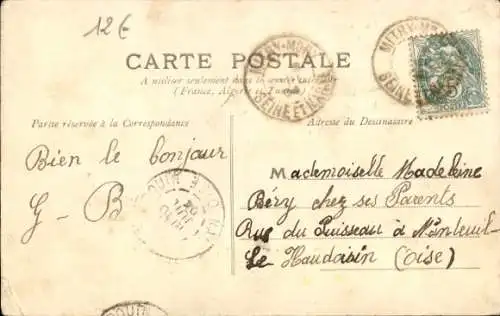 12€
CARTE POSTALE
A utiliser seulement dans le service intérieur
(France, Algérie et Tunisie)
MITRY-MORY
SEINE-ET-MARNE
MITRY-MO
SEINE-
5
Partie réservée à la Correspondance
Adresse du Destinataire
Bien le bonjour
G - B
Mademoiselle Madeleine
Béry chez ses Parents
Rue du Puisseau à Nanteuil-
Le Haudoin (Oise)